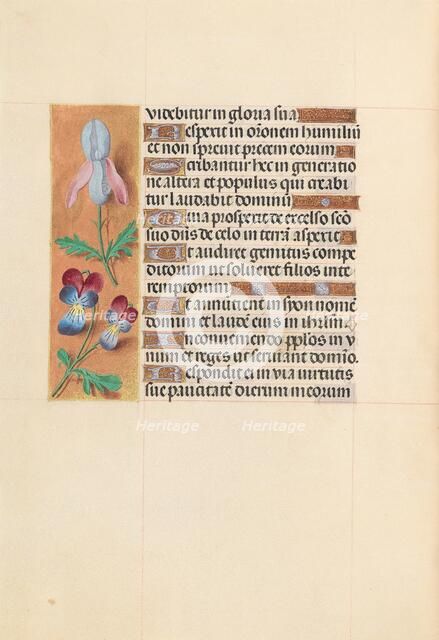 videbitur in gloria sua
Respexit in or̄onem humiliū
et non sprevit precem eorum
Scribantur hec in generatio
ne altera et populus qui creabi
tur laudabit dominū
Quia prospexit de excelso scō
suo dn̄s de celo in terrā aspexit
Ut audiret gemitus compe
ditorum ut solveret filios inte
remptorum
Ut annuncient in syon nomē
domini et laudē eius in ihrlm̄
In conveniendo pplōs in v
num et reges ut serviant domīo
Respondit ei in via virtutis
sue paucitatē dierum meorum
Heritage
Heritage
Heritage
Heritage
Heritage
Heritage